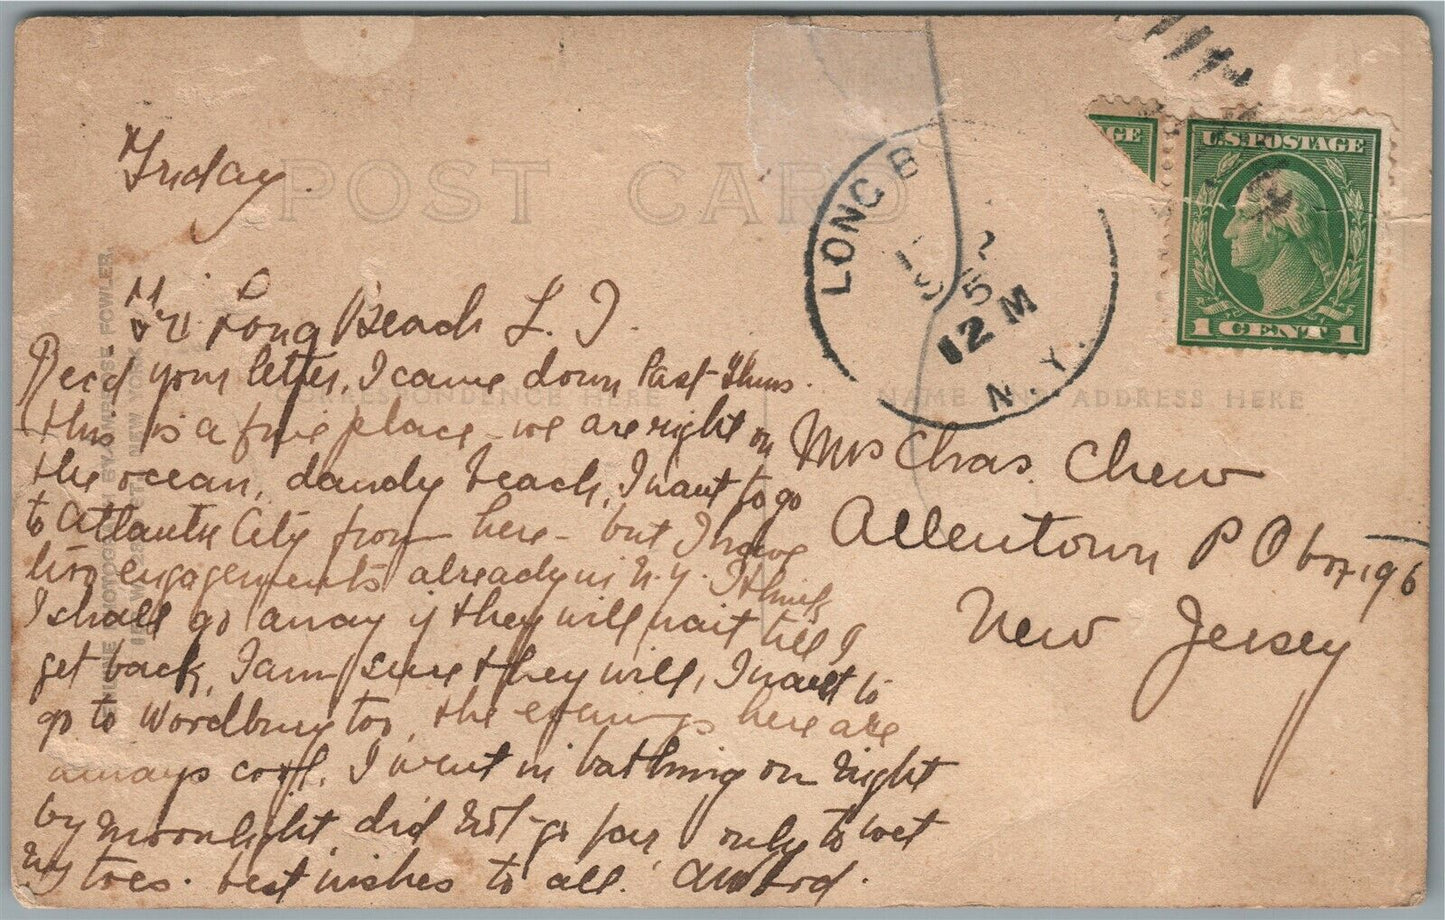 Friday.
POST CARD
Long Beach L. I.
Recd your letter, I came down last Thurs.
this is a fine place - we are right on
the ocean, dandy beach, I want to go
to Atlantic City from here - but I have
two engagements already in N.Y. I think
I shall go away if they will wait till I
get back, I am sure they will, I want to
go to Woodbury too, the evenings here are
always cool. I went in bathing on night
by moonlight did not go far, only to wet
my toes. best wishes to all.
CORRESPONDENCE HERE
NAME AND ADDRESS HERE
LONG B
N.Y.
12 M
U.S. POSTAGE
1 CENT 1
GE
Mrs Chas. Chew
Allentown P O box 196
New Jersey